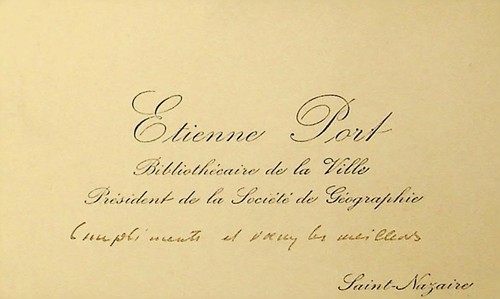 Etienne Port
Bibliothécaire de la Ville
Président de la Société de Géographie
Compliments et vœux les meilleurs
Saint-Nazaire